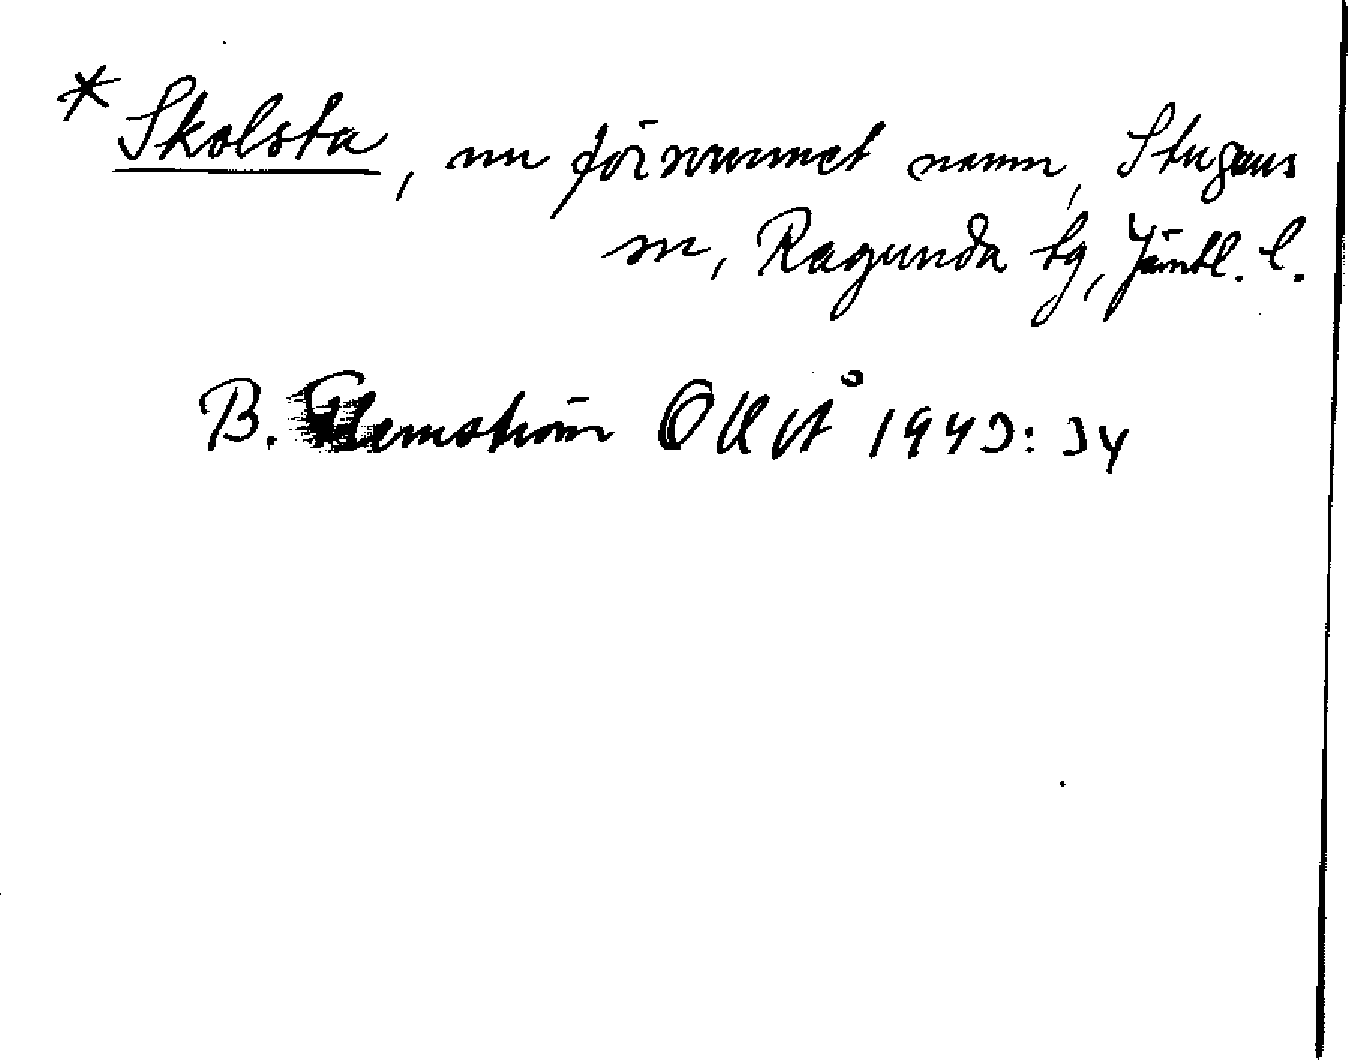 * Skolsta, nu försvunnet namn, Stuguns
sn, Ragunda tg, Jämtl. l.
B. Flemström OUÅ 1943: 34